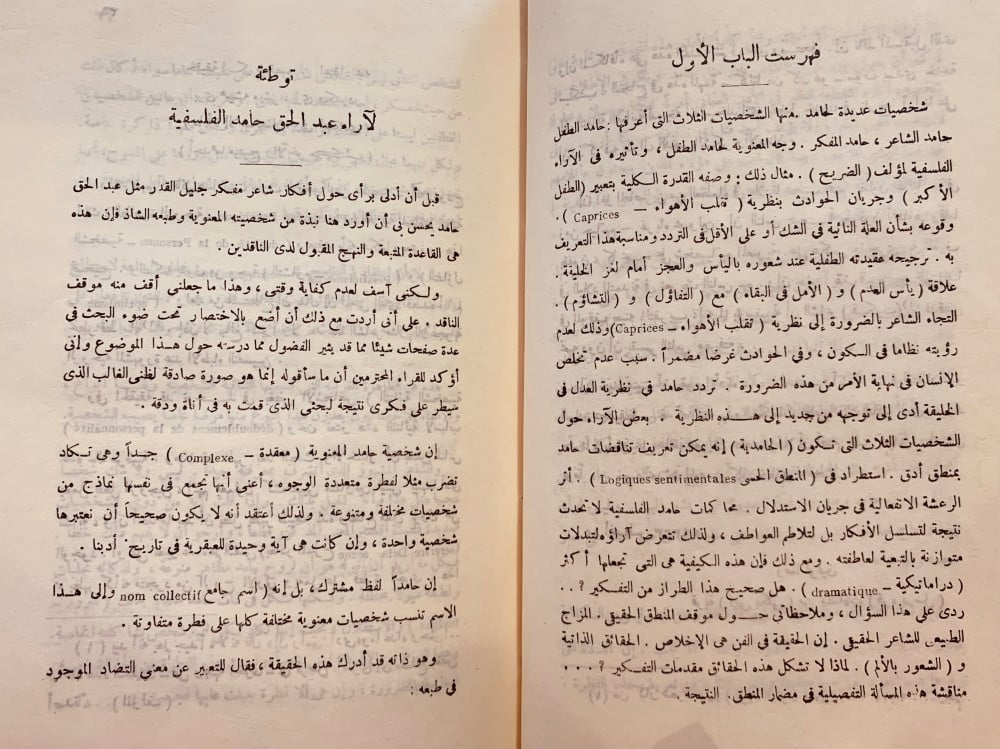 فهرست الباب الأول
شخصيات عديدة لحامد . منها الشخصيات الثلاث التى أعرفها : حامد الطفل
حامد الشاعر ، حامد المفكر . وجه المعنوية لحامد الطفل ، وتأثيره فى الآراء
الفلسفية لمؤلف ( الضريح ) . مثال ذلك : وصفه القدرة الكلية بتعبير ( الطفل
الأكبر ) وجريان الحوادث بنظرية ( تقلب الأهواء – Caprices ) .
وقوعه بشأن العلة النائية فى الشك أو على الأقل فى التردد ومناسبة هذا التعريف
به . ترجيحه عقيدته الطفلية عند شعوره باليأس والعجز أمام لغز الخليقة .
علاقة ( يأس العدم ) و ( الأمل فى البقاء ) مع ( التفاؤل ) و ( التشاؤم ) .
التجاء الشاعر بالضرورة إلى نظرية ( تقلب الأهواء – Caprices ) وذلك لعدم
رؤيته نظاما فى السكون ، وفى الحوادث غرضا مضمراً . سبب عدم تخلص
الانسان فى نهاية الأمر من هذه الضرورة . تردد حامد فى نظرية العدل فى
الخليقة أدى إلى توجهه من جديد إلى هــذه النظرية . بعض الآراء حول
الشخصيات الثلاث التى تكون ( الحامدية ) إنه يمكن تعريف تناقضات حامد
بمنطق أدق . استطراد فى ( المنطق الحسى Logiques sentimentales ) . أثر
الرعشة الانفعالية فى جريان الاستدلال . محاكمات حامد الفلسفية لا تحدث
نتيجة لتسلسل الأفكار بل لتلاطم العواطف ، ولذلك تتعرض آراؤه لتبدلات
متوازنة بالتبعية لعاطفته . ومع ذلك فإن هذه الكيفية هى التى تجعلها أكثر
( دراماتيكية – dramatique ) . هل صحيح هذا الطراز من التفكير ؟ . .
ردى على هذا السؤال ، وملاحظاتى حــول موقف المنطق الحقيقى . المزاج
الطبيعى للشاعر الحقيقى . إن الحقيقة فى الفن هى الإخلاص . الحقائق الذاتية
و ( الشعور بالألم ) . لماذا لا تشكل هذه الحقائق مقدمات التفكير ؟ . . . .
مناقشة هذه المسألة التفصيلية فى مضمار المنطق . النتيجة .
توطئة
لآراء عبد الحق حامد الفلسفية
قبل أن أدلى برأى حول أفكار شاعر مفكر جليل القدر مثل عبد الحق
حامد يحسن بى أن أورد هنا نبذة من شخصيته المعنوية وطبعه الشاذ فإن هذه
هى القاعدة المتبعة والنهج المقبول لدى الناقدين .
ولكنى آسف لعدم كفاية وقتى ، وهذا ما جعلنى أقف منه موقف
الناقد . على أنى أردت مع ذلك أن أضع بالاختصار تحت ضوء البحث فى
عدة صفحات شيئا مما قد يثير الفضول مما درسته حول هــذا الموضوع وإنى
أؤكد للقراء المحترمين أن ما سأقوله إنما هو صورة صادقة لظنى الغالب الذى
سيطر على فكرى نتيجة لبحثى الذى قمت به فى أناة ودقة .
إن شخصية حامد المعنوية ( معقدة – Complexe ) جــداً وهى تكاد
تضرب مثلا لفطرة متعددة الوجوه ، أعنى أنها تجمع فى نفسها نماذج من
شخصيات مختلفة ومتنوعة . ولذلك أعتقد أنه لا يكون صحيحاً أن نعتبرها
شخصية واحدة ، وإن كانت هى آية وحيدة للعبقرية فى تاريخ أدبنا .
إن حامداً لفظ مشترك ، بل إنه ( اسم جامع nom collectif وإلى هــذا
الاسم تنسب شخصيات معنوية مختلفة كلها على فطرة متفاوتة .
وهو ذاته قد أدرك هذه الحقيقة ، فقال للتعبير عن معنى التضاد الموجود
فى طبعه :